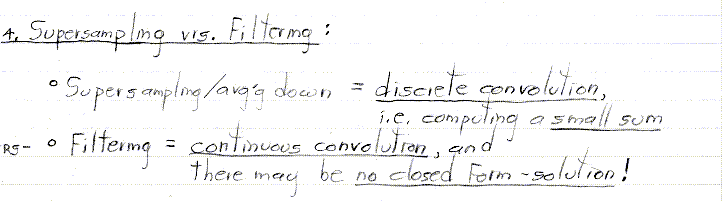 4. Supersampling vrs. Filtering:
° Supersampling/avg'g down = discrete convolution,
i.e. computing a small sum
R5- ° Filtering = continuous convolution, and
there may be no closed form-solution!